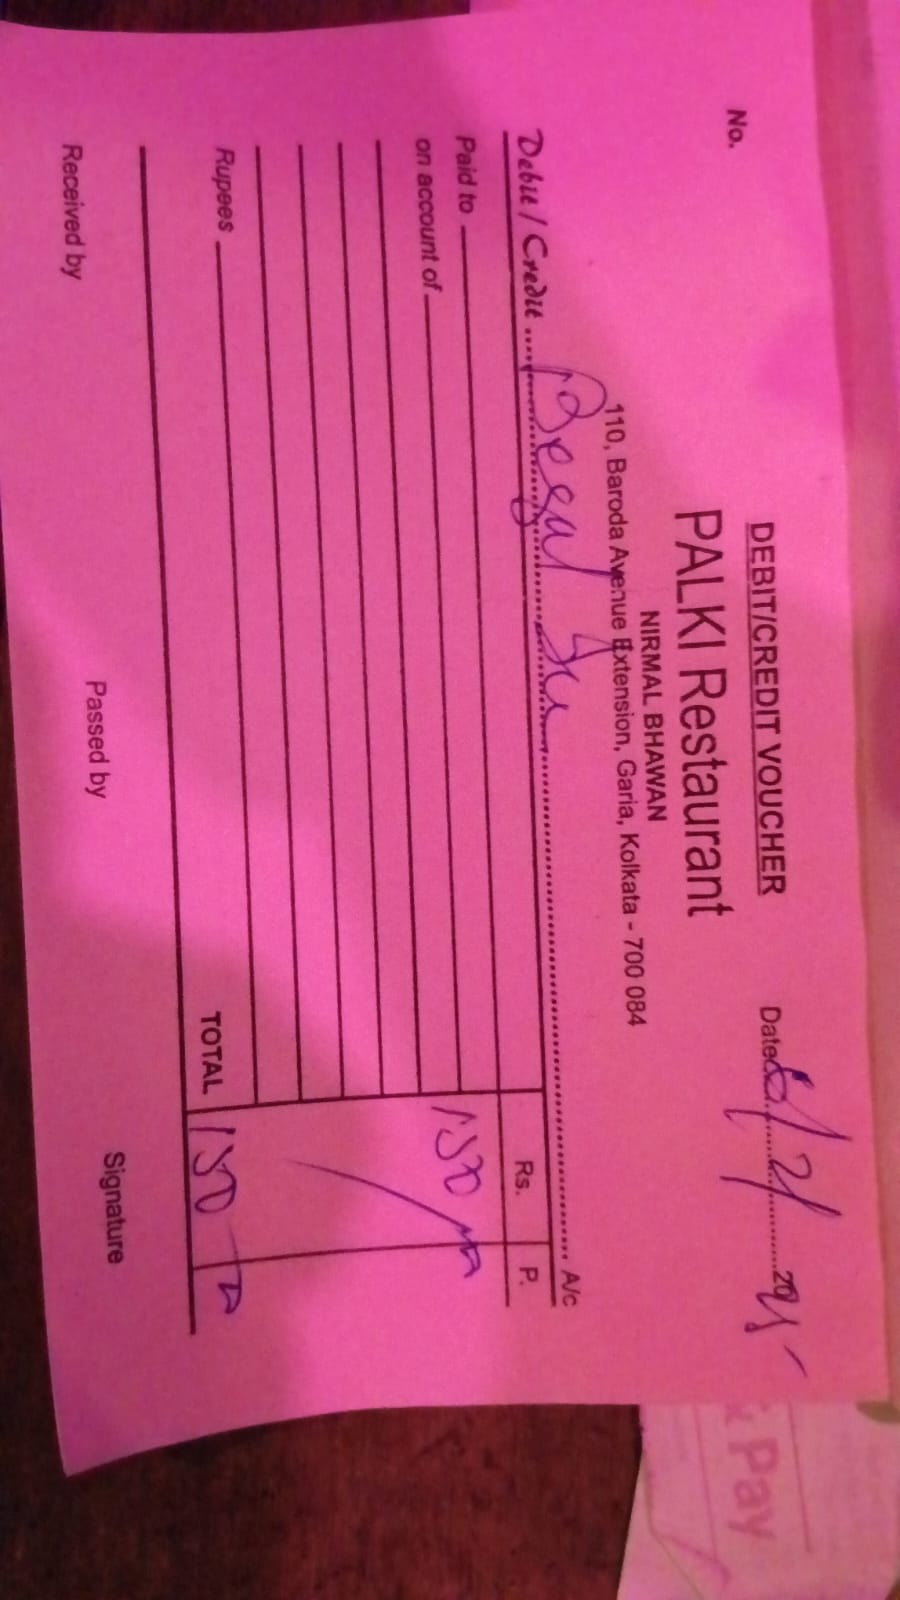 No.
DEBIT/CREDIT VOUCHER
Dated
PALKI Restaurant
NIRMAL BHAWAN
110, Baroda Avenue Extension, Garia, Kolkata - 700 084
Debit / Credit A/c
Rs. P.
Paid to
on account of
Rupees TOTAL
Received by Passed by Signature
Pay